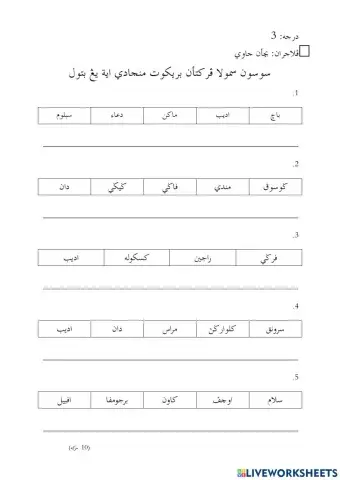 درجه: 3
ڤلاجران: بجأن جاوي
سوسون سمولا ڤركتأن بريكوت منجادي اية يڠ بتول
.1
باچ اديب ماكن دعاء سبلوم
.2
ݢوسوق مندي ݢاݢي كيكي دان
.3
ڤرݢي راجين كسكوله اديب
.4
سرونق كلواركن مراس دان اديب
.5
سلام اوچڤ كاون برجومڤا اڤبيل
10
LIVEWORKSHEETS